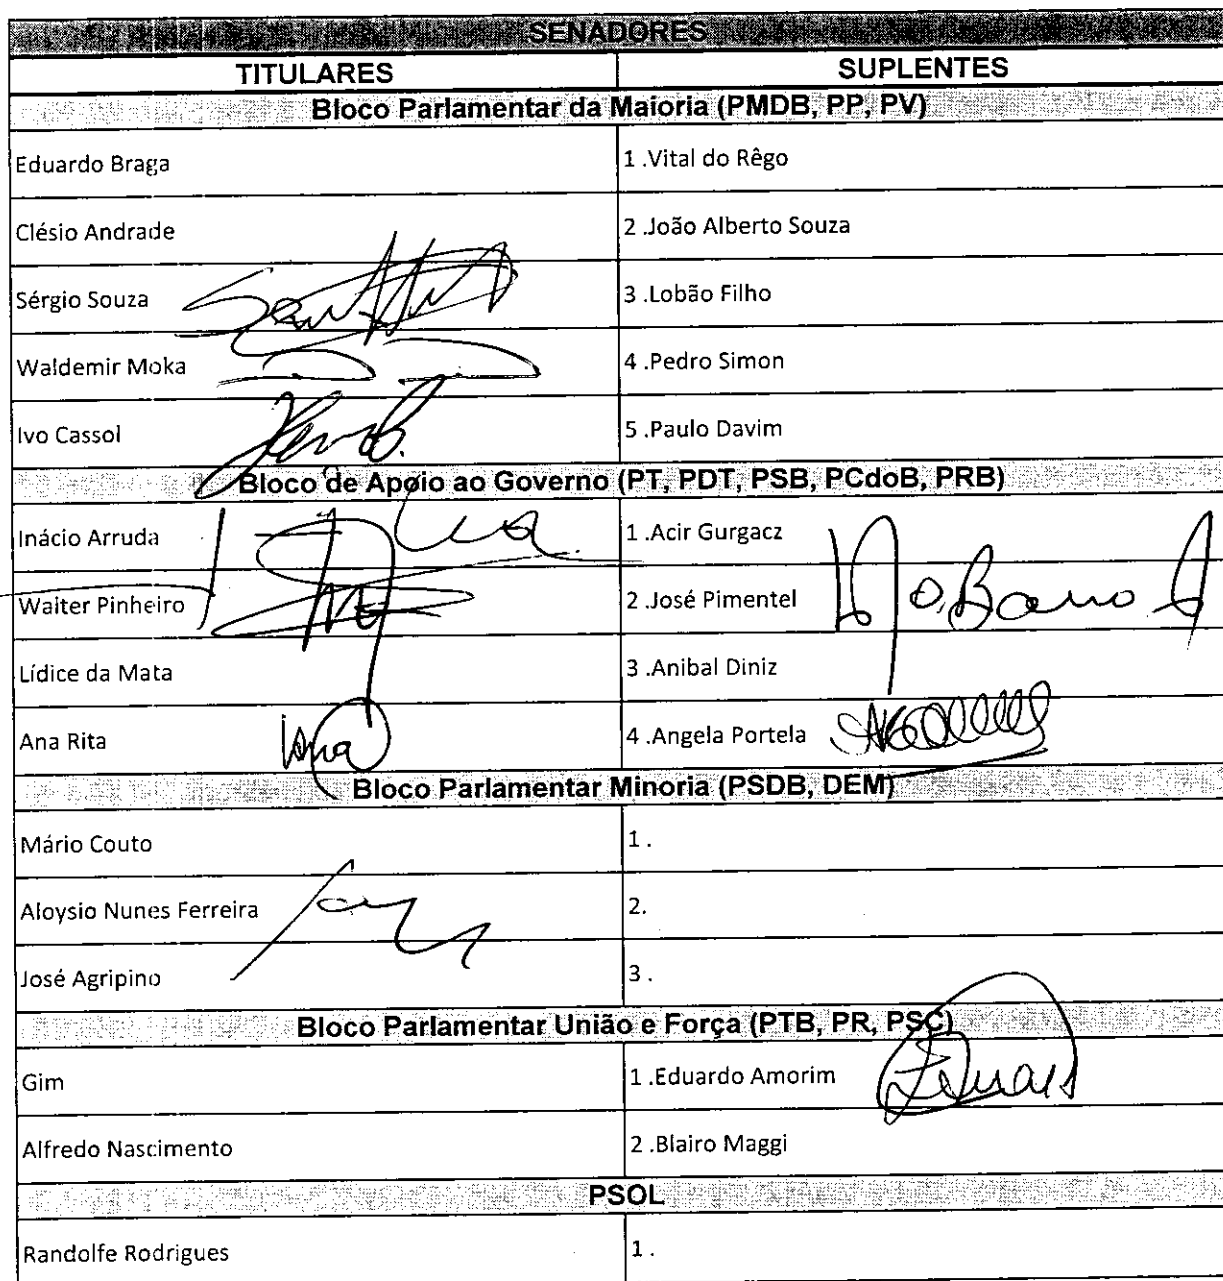 SENADORES
TITULARES SUPLENTES
Bloco Parlamentar da Maioria (PMDB, PP, PV)
Eduardo Braga 1 .Vital do Rêgo
Clésio Andrade 2 .João Alberto Souza
Sérgio Souza 3 .Lobão Filho
Waldemir Moka 4 .Pedro Simon
Ivo Cassol 5 .Paulo Davim
Bloco de Apoio ao Governo (PT, PDT, PSB, PCdoB, PRB)
Inácio Arruda 1 .Acir Gurgacz
Walter Pinheiro 2 .José Pimentel
Lídice da Mata 3 .Anibal Diniz
Ana Rita Ana 4 .Angela Portela
Bloco Parlamentar Minoria (PSDB, DEM)
Mário Couto 1 .
Aloysio Nunes Ferreira 2.
José Agripino 3 .
Bloco Parlamentar União e Força (PTB, PR, PSC)
Gim 1 .Eduardo Amorim
Alfredo Nascimento 2 .Blairo Maggi
PSOL
Randolfe Rodrigues 1 .